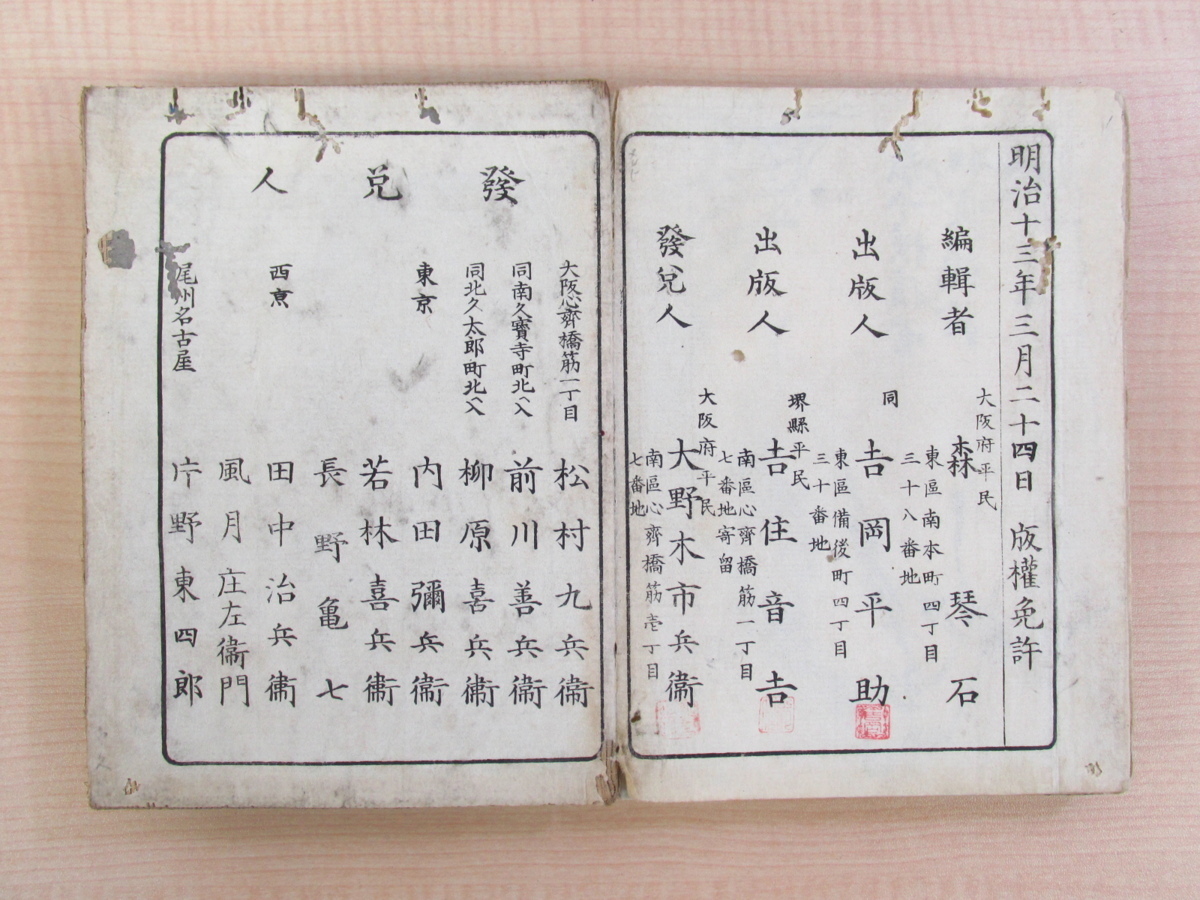 明治十三年三月二十四日 版權免許
編輯者
大阪府平民
森琴石
東區南本町四丁目
三十八番地
出版人
同
吉岡平助
東區備後町四丁目
三十番地
出版人
堺縣平民
吉住音吉
南區心齊橋筋一丁目
七番地寄留
發兌人
大阪府平民
大野木市兵衞
南區心齊橋筋壱丁目
七番地
發兌人
大阪心齊橋筋一丁目
松村九兵衞
同南久寶寺町北ヘ入
前川善兵衞
同北久太郎町北ヘ入
柳原喜兵衞
東京
内田彌兵衞
若林喜兵衞
長野亀七
西京
田中治兵衞
風月庄左衞門
尾州名古屋
片野東四郎